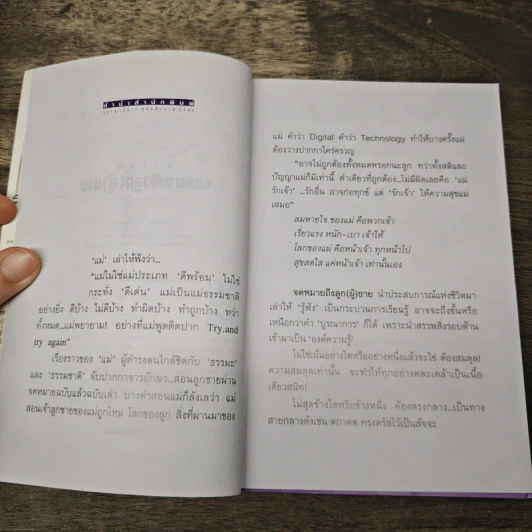 คำนำสำนักพิมพ์
'แม่' เล่าให้ฟังว่า...
"แม่ไม่ใช่แม่ประเภท 'ดีพร้อม' ไม่ใช่
กระทั่ง 'ดีเด่น' แม่เป็นแม่ธรรมชาติ
อย่างยิ่ง ดีบ้าง ไม่ดีบ้าง ทำผิดบ้าง ทำถูกบ้าง ทว่า
ทั้งหมด...แม่พยายาม! อย่างที่แม่พูดติดปาก Try,and
try again"
เรื่องราวของ 'แม่' ผู้ดำรงตนใกล้ชิดกับ 'ธรรมะ'
และ 'ธรรมชาติ' จับปากกาจารอักษร...สอนลูกชายผ่าน
จดหมายฉบับแล้วฉบับเล่า บางคำสอนแม่ก็ลังเลว่า แม่
สอนเจ้าลูกชายของแม่ถูกไหม โลกของลูก สิ่งที่ผ่านมาของ
แม่ คำว่า Digital คำว่า Technology ทำให้บางครั้งแม่
ต้องวางปากกาใคร่ครวญ
"อาจไม่ถูกต้องทั้งหมดหรอกนะลูก ทว่าทั้งสติและ
ปัญญาแม่ก็มีเท่านี้ คำเดียวที่ถูกต้อง...ไม่มีผิดเลยคือ 'แม่
รักเจ้า' ...รักอื่น อาจก่อทุกข์ แต่ 'รักเจ้า' ให้ความสุขแม่
เสมอ"
ลมหายใจ ของแม่ คือพวกเจ้า
เรี่ยวแรง หนัก-เบา เจ้าให้
โลกของแม่ คือหน้าเจ้า ทุกหน้าไป
สุขสดใส แค่หน้าเจ้า เท่านั้นเอง
จดหมายถึงลูก(ผู้)ชาย นำประสบการณ์แห่งชีวิตมา
เล่าให้ 'รู้ฟัง' เป็นกระบวนการเรียนรู้ อาจจะถึงขั้นหรือ
เหนือกว่าคำ 'บูรณาการ' ก็ได้ เพราะนำสรรพสิ่งรอบด้าน
เข้ามาเป็น 'องค์ความรู้'
ไม่ใช่เน้นอย่างใดหรืออย่างหนึ่งแล้วจะใช่ ต้องสมดุล!
ความสมดุลเท่านั้น จะทำให้ทุกอย่างคละเคล้าเป็นเนื้อ
เดียวสนิท!
ไม่สุดข้างใดหรือข้างหนึ่ง ต้องตรงกลาง...เป็นทาง
สายกลางดังเช่น ตถาคต ทรงตรัสไว้เป็นสัจจะ